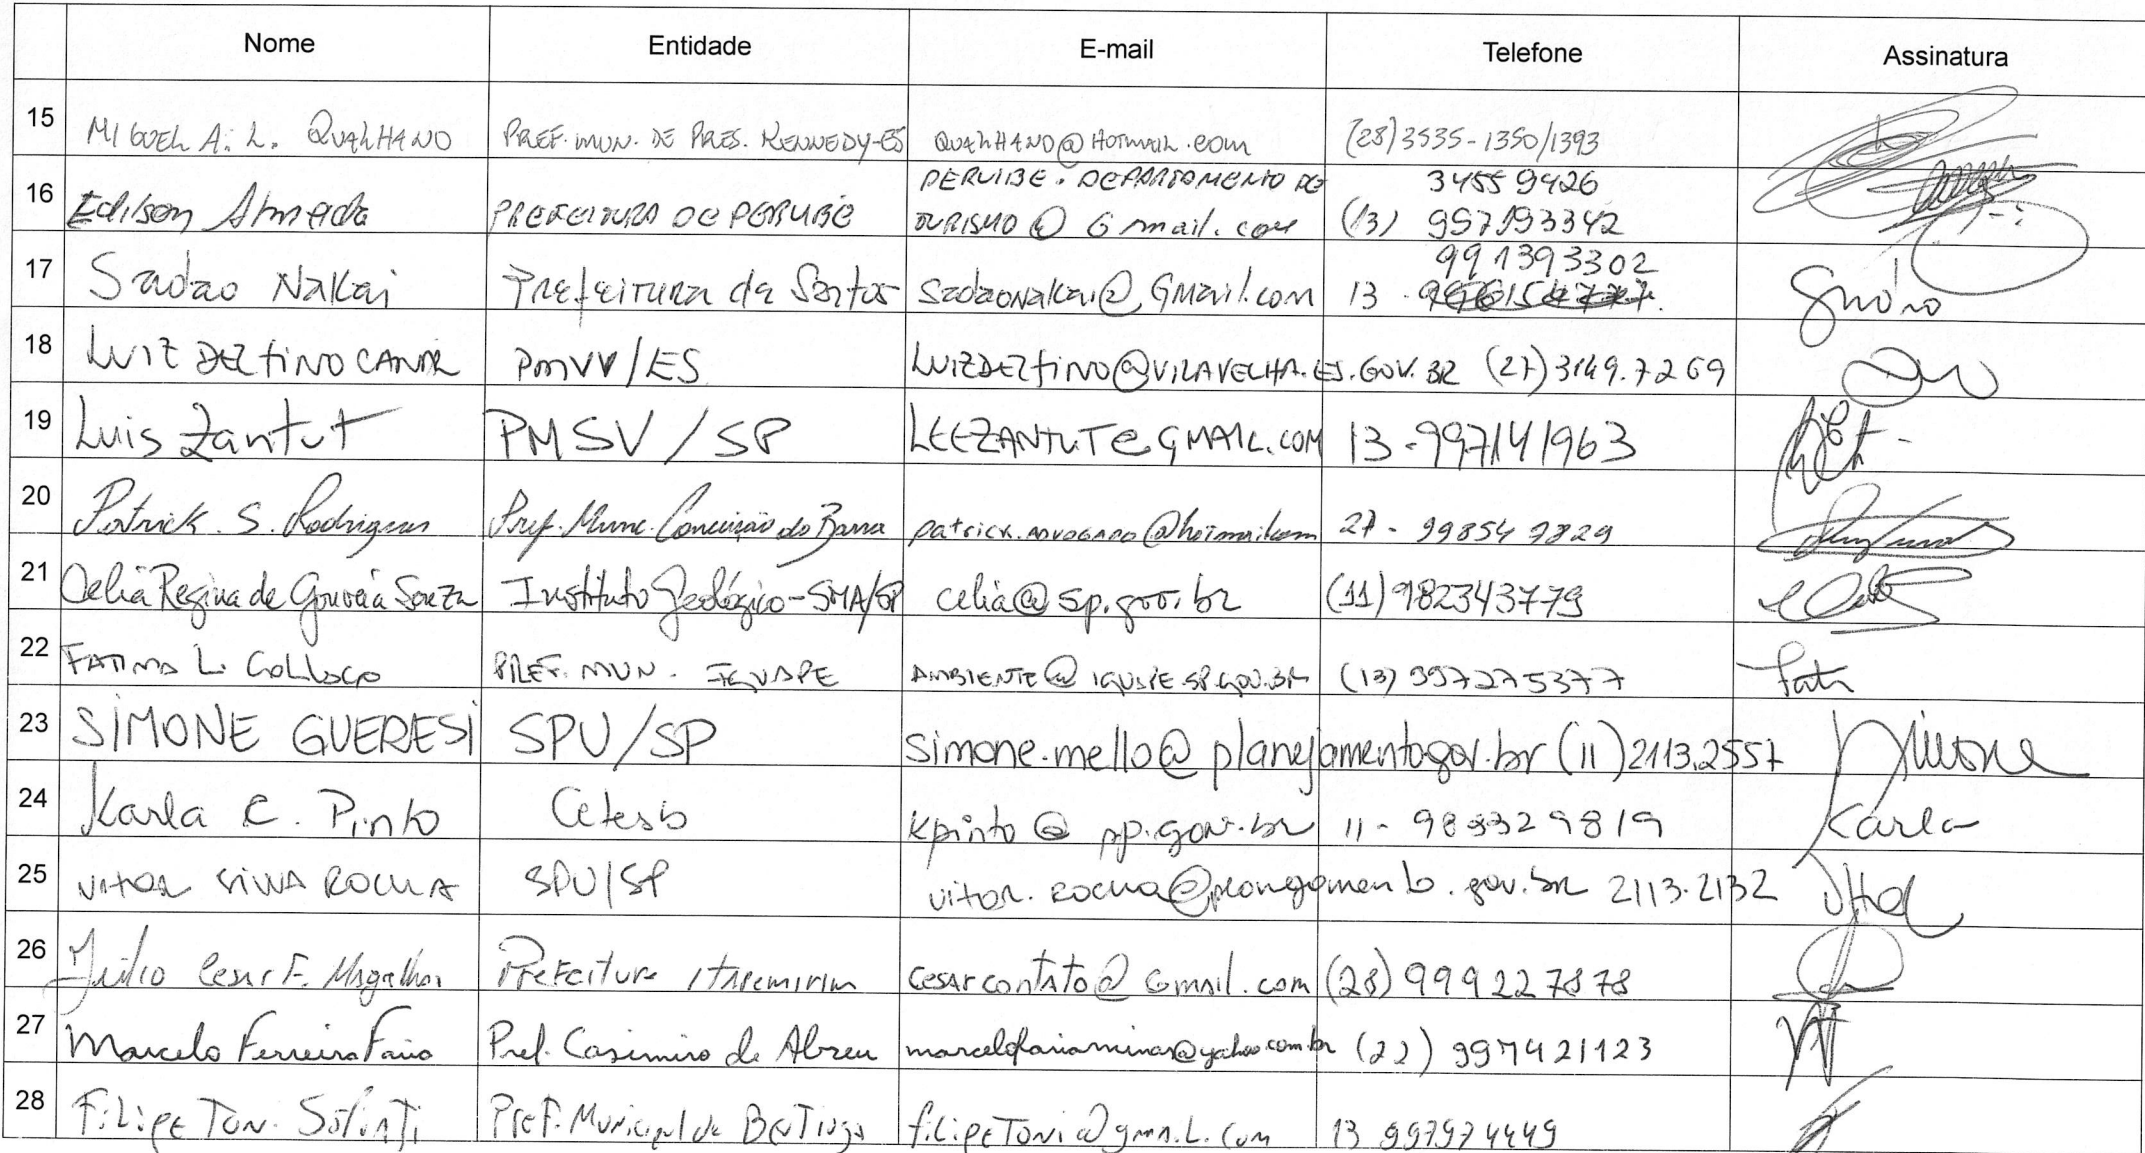 Nome Entidade E-mail Telefone Assinatura
15 MIGUEL A. L. QUALHANO PREF. MUN. DE PRES. KENNEDY-ES QUALHANO@HOTMAIL.COM (28)3535-1350/1393
PERUIBE.DEPARTAMENTO DE 3455 9426
16 Edilson Almeida PREFEITURA DE PERUIBE TURISMO@Gmail.com (13) 997193342
991393302
17 Sadao Nakai Prefeitura de Santos sadaonakai@Gmail.com 13
18 LUIZ DELFINO PMVV/ES LUIZDELFINO@VILAVELHA.ES.GOV.BR (27)3149.7269
19 Luis Zantut PMSV/SP LEEZANTUT@GMAIL.COM 13-997141963
20 Patrick S. Rodrigues Pref. Munc. Conceição da Barra patrick.ADVOGADO@hotmail.com 27-99854 7829
21 Celia Regina de Gouveia Souza Instituto Geológico-SMA/SP celia@sp.gov.br (11)982343779
22 FATIMA L. COLLAÇO PREF. MUN. IGUAPE AMBIENTE@IGUAPE.SP.GOV.BR (13) 997275377 Fati
23 SIMONE GUERESI SPU/SP simone.mello@planejamento.gov.br (11)2113.2557 Simone
24 Karla C. Pinto Cetesb kpinto@sp.gov.br 11-983329819 Karla
25 VITOR ROCHA SPU/SP vitor.rocha@planejamento.gov.br 2113.2132 Vitor
26 Júlio Cesar F. Magalhães Prefeitura Itapemirim cesarcontato@Gmail.com (28) 999227878
27 Marcelo Ferreira Faria Pref. Casimiro de Abreu marcelofariaminas@yahoo.com.br (22) 997421123
28 Filipe Toni Pref. Municipal de Bertioga filipeToni@gmail.com 13 997974449